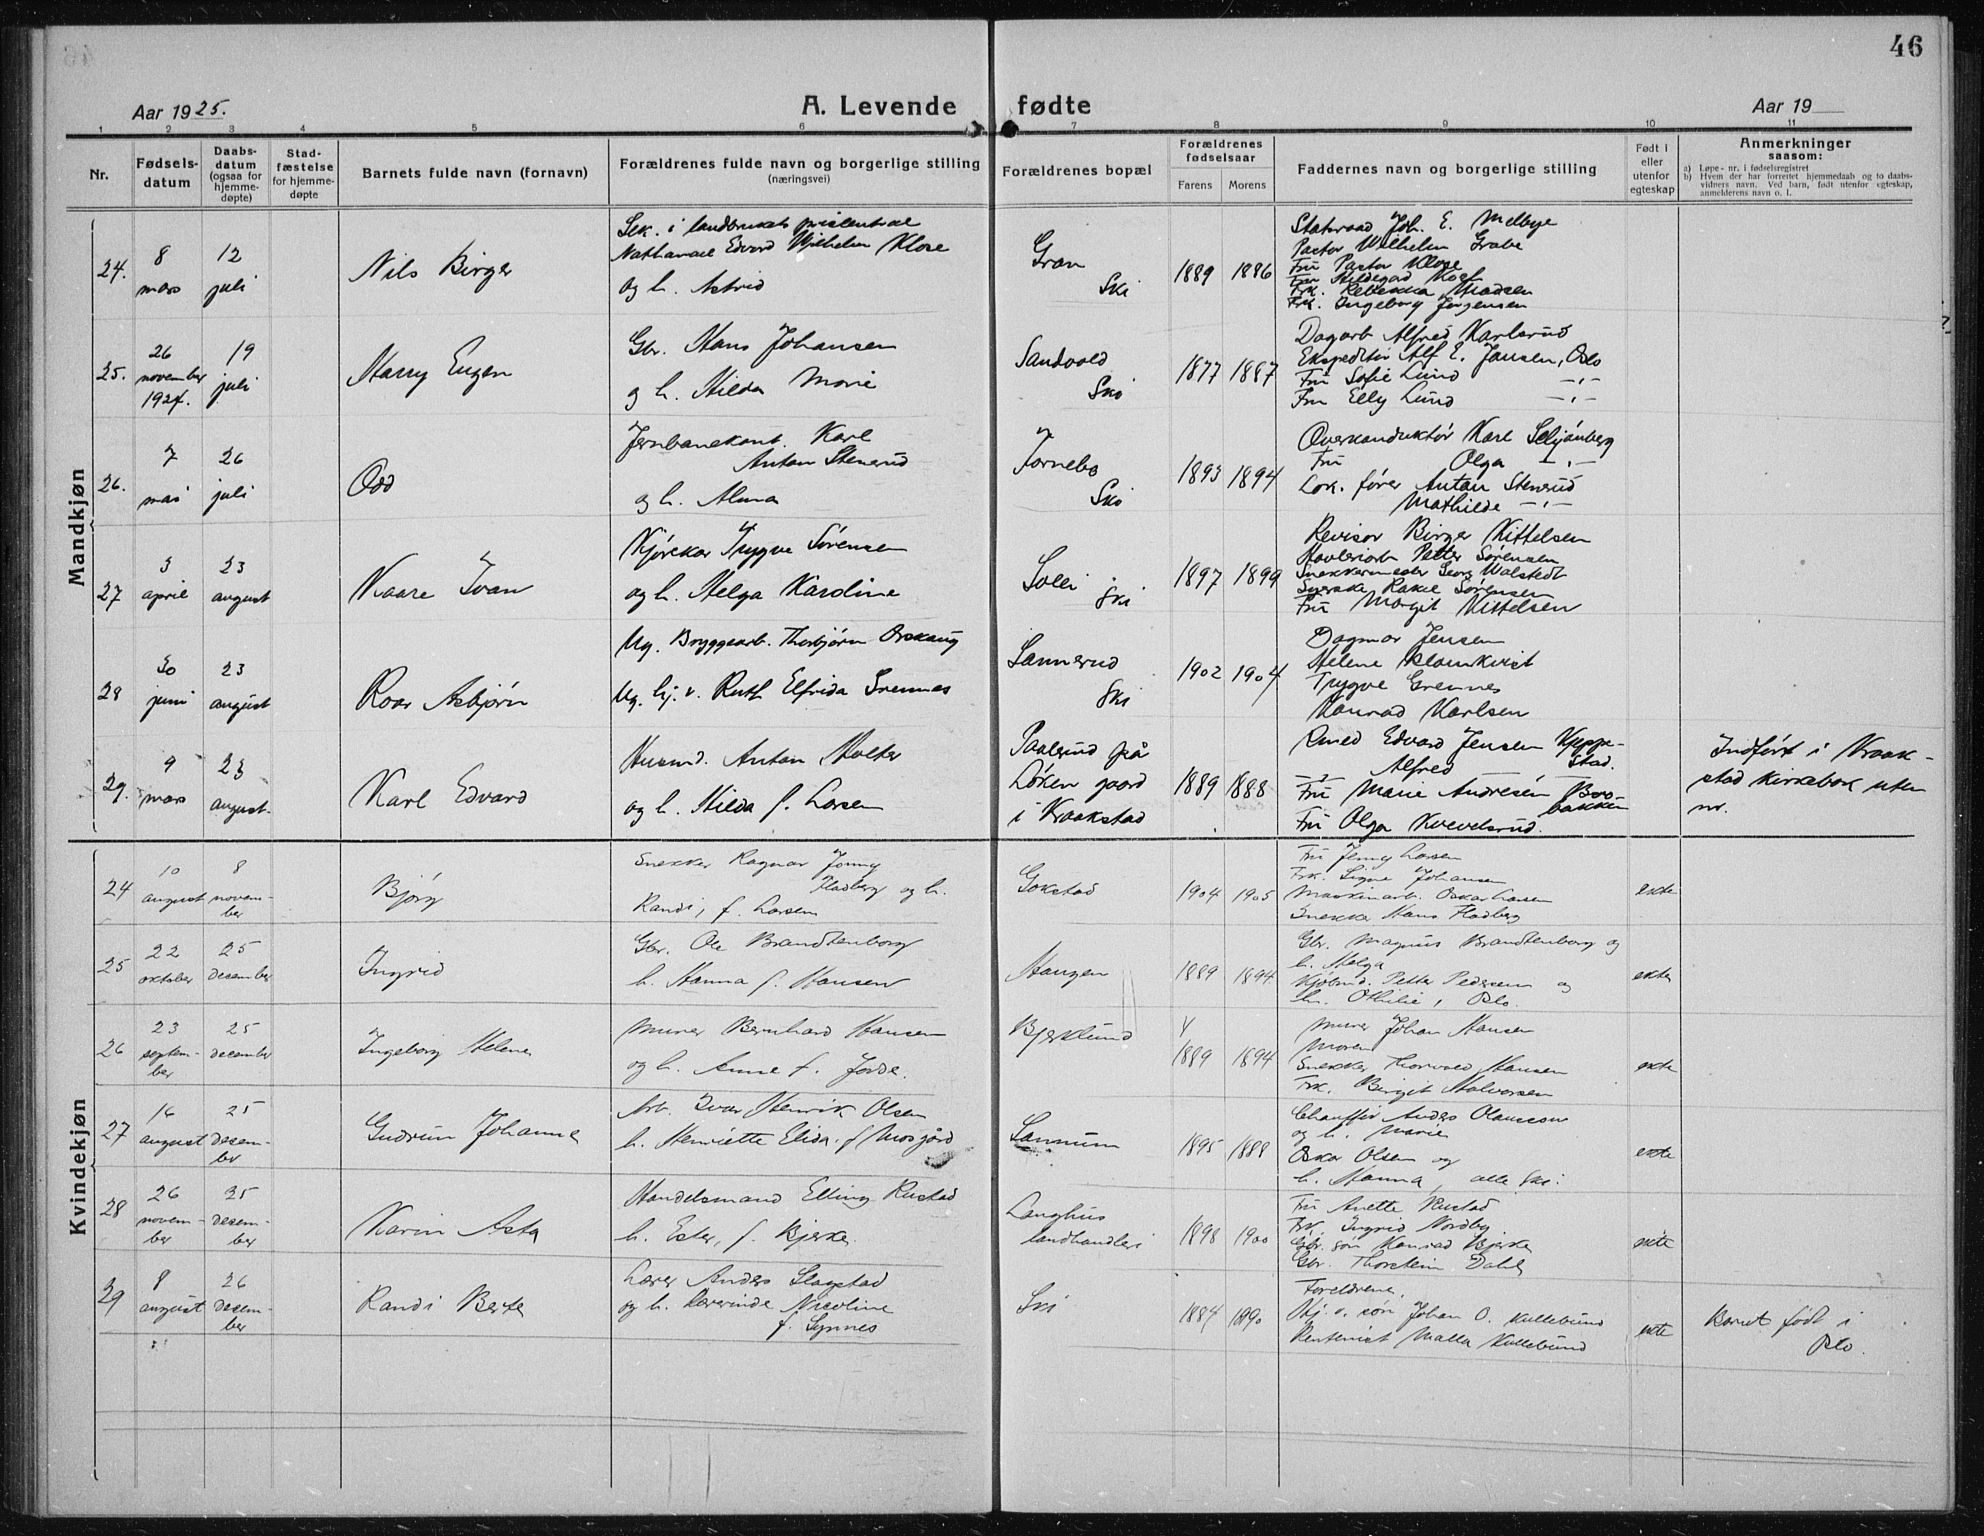 46
Aar 1925.
A. Levende fødte
Aar 19
1 2 3 4 5 6 7 8 9 10 11
Nr.
Fødsels-
datum
Daabs-
datum
(ogsaa for
hjemme-
døpte)
Stad-
fæstelse
for hjemme-
døpte
Barnets fulde navn (fornavn)
Forældrenes fulde navn og borgerlige stilling
(næringsvei)
Forældrenes bopæl
Forældrenes
fødselsaar
Farens
Morens
Faddernes navn og borgerlige stilling
Født i
eller
utenfor
egteskap
Anmerkninger
saasom:
a) Løpe-nr. i fødselsregistret
b) Hvem der har forrettet hjemmedaab og to daabs-
vidners navn. Ved barn, født utenfor egteskap,
anmelderens navn o. l.
Mandkjøn
24.
8
mars
12
juli
Nils Birger
Sek. i landbrukets priscentrale
Nathanael Edvard Wilhelm Klose
og h. Astrid
Gran
Ski
1889 1886
Statsraad Joh. E. Melbye
Pastor Wilhelm Grabe
Fru Pastor Klose
Fru Hildegad
Frk. Rebekka Madsen
Frk. Ingeborg Jørgensen
25.
26
november
1924.
19
juli
Harry Eugen
Gbr. Hans Johansen
og h. Hilda Marie
Sandvold
Ski
1877 1887
Dagarb Alfred Karlsrud
Ekspeditør Alf E. Jansen, Oslo
Fru Sofie Lund —"—
Fru Elly Lund —"—
26.
7
mai
26
juli
Odd
Jernbanekont. Karl
Anton Stensrud
og h. Alma
Tornebo
Ski
1893 1894
Overkonduktør Karl
Fru Olga —"—
Lok. fører Anton Stensrud
Mathilde —"—
27
3
april
23
august
Kaare Ivan
Kjørekar Trygve Sørensen
og h. Helga Karoline
Solli
Ski
1897 1899
Revisor Birger Kittelsen
Høvleriarb Petter Sørensen
Snekkermester Georg Walstedt
Rakel Sørensen
Fru Margit Kittelsen
28
30
juni
23
august
Roar Asbjørn
Ug. Bryggearb. Thorbjørn Orskaug
Ug. hj. v. Ruth Elfrida Grennes
Sannerud
Ski
1902 1904
Dagmar Jensen
Helene Blomkvist
Trygve Grennes
Konrad Karlsen
29.
9
mars
23
august
Karl Edvard
Husmd. Anton Holter
og h. Hilda f. Larsen
Paalerud på
Løken gaard
i Kraakstad
1889 1888
Edvard Jensen Kjeppe-
stad.
—"— Alfred
Fru Marie Andresen
bakken
Fru Olga Kvevelsrud.
Indført i Kraak-
stad kirkebok uten
nr.
Kvindekjøn
24
10
august
8
novem-
ber
Bjørg
Snekker Ragnar Jonny
Fladberg og h.
Randi, f. Larsen
Gokstad
1904 1905
Fru Jenny Larsen
Frk. Signe Johansen
Maskinarb. Oskar Larsen
Snekker Hans Fladberg
ekte
25
22
oktober
25
desember
Ingrid
Gbr. Ole Brandtenborg
h. Hanna f. Hansen
Haugen
1889 1894
Gbr. Magnus Brandtenborg og
h. Helga
Kjøbmd. Petter Pedersen og
h. Othilie, Oslo.
ekte
26
23
septem-
ber
25
desember
Ingeborg Helene
Murer Bernhard Hansen
og h. Anne f. Jorde.
Bjerklund
1889 1894
Murer Johan Hansen
Moren
Snekker Thorvald Hansen
Frk. Birgit Halvorsen
ekte
27
16
august
25
desem-
ber
Gudrun Johanne
Arb. Ivar Henrik Olsen
h. Henriette Elida f. Mosgård
Sannum
1895 1888
Chauffør Anders Olaussen
og h. Marie
Oskar Olsen og
h. Hanna, alle Ski.
ekte
28
26
novem-
ber
25
desem-
ber
Karin Asta
Handelsmand Elling Rustad
h. Ester, f. Bjerke.
Langhus
landhandleri
1898 1900
Fru Anette Rustad
Frk. Ingrid Nordby
Gbr. søn Konrad Bjerke
Gbr. Thorstein Dahl
ekte
29
8
august
26
desem-
ber
Randi Berte
Lærer Anders Slagstad
og h. lærerinde Nicoline
f. Synnes
Ski
1884 1890
Foreldrene.
søn Johan O. Kullebund
Rentenist Malla Kullebund
ekte
Barnet født i
Oslo.